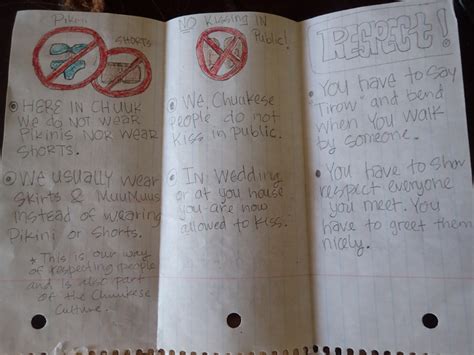 Pikini
SHORTS
HERE IN CHUUK
We do NOT WEAR
Pikinis NOR WEAR
SHORTS.
We USUALLY Wear
Skirts & MuuMuus
Instead of wearing
Pikini or Shorts.
* This is our way
of respecting people
and is also part
of the Chuukese
Culture.
NO Kissing IN
Public!
We, Chuukese
people do not
Kiss in public.
In Wedding
or at you house
you are now
allowed to Kiss.
RESPECT!
You have to Say
"Tirow" and bend
when You walk
by someone.
You have to show
respect everyone
you meet. You
have to greet them
nicely.